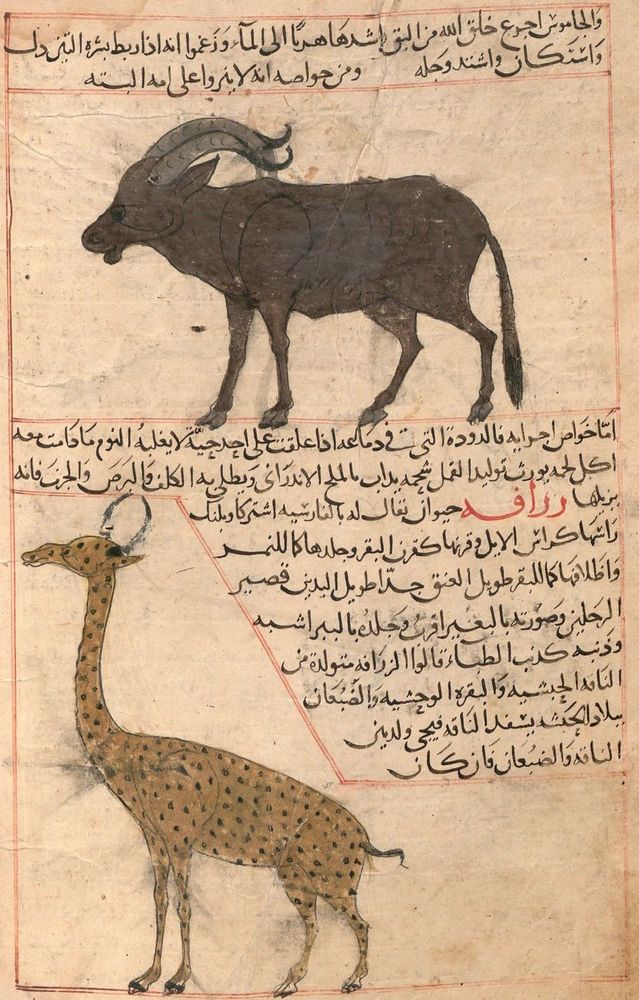 والجاموس اجزع خلق الله من البق واشدها هربا الى المآء وزعموا انه اذا ربط بشجرة التين ذل
واستكان واشتد وجله ومن خواصه انه لا ينزوا على امه البته
امّا خواص اجزايه فالدودة التى فى دماغه اذا علقت على احد حيّة لا يغلبه النوم ما دامت معه
اكل لحمه يورث توليد القمل شحمه يذاب بالملح الاندرانى ويطلى به الكلف والبرص والجرب فانه
يزيلها زرافه حيوان يقال له بالفارسيه اشتركاوبلنك
راسها كراس الابل وقرنها كقرن البقر وجلدها كما للنمر
واظلافها كما للبقر طويل العنق جدّا طويل اليدين قصير
الرجلين وصورته بالبعير اقرب وجلده بالببر اشبه
وذنبه كذنب الظباء قالوا الزرافه متولدة من
الناقه الحبشيه والبقره الوحشيه والضبعان
ببلاد الحبشه يسفد الناقه فيجى ولد بين
الناقه والضبعان فان كان